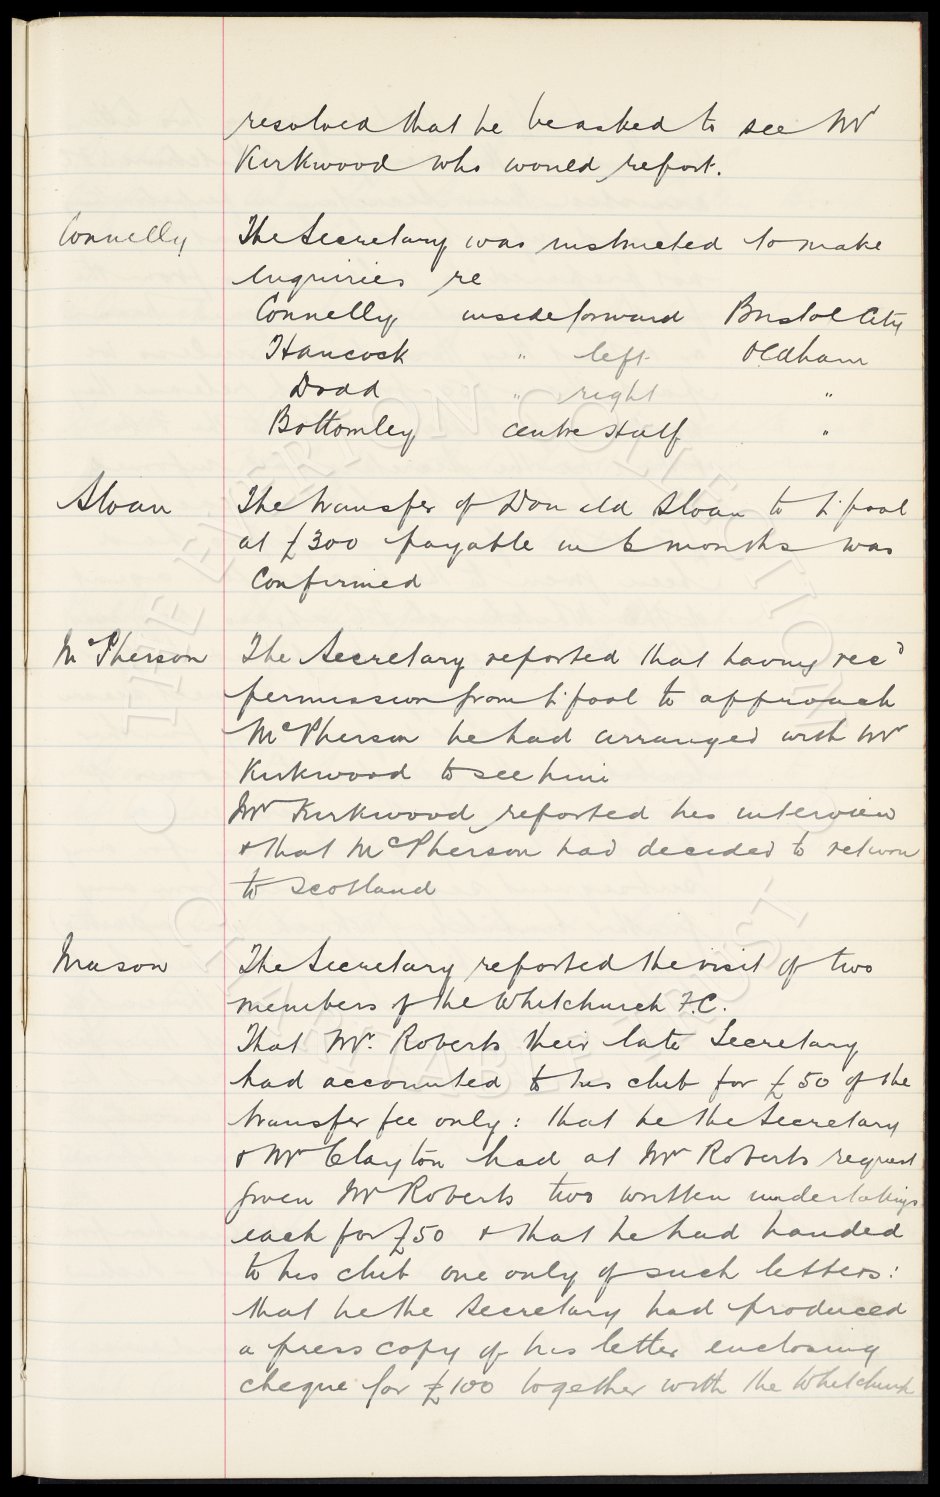 resolved that he be asked to see Mr
Kirkwood who would report.
Connelly The Secretary was instructed to make
enquiries re
Connelly inside forward Bristol City
Hancock " left Oldham
Dodd " right "
Bottomley centre Half "
Sloan The transfer of Donald Sloan to L'pool
at £300 payable in 6 months was
Confirmed
McPherson The Secretary reported that having recd
permission from L'pool to approach
McPherson he had arranged with Mr
Kirkwood to see him
Mr Kirkwood reported his interview
& that McPherson had decided to return
to Scotland
Mason The Secretary reported the visit of two
members of the Whitchurch F.C.
That Mr. Roberts their late Secretary
had accounted to his club for £50 of the
transfer fee only: that he the Secretary
& Mr Clayton had at Mr Roberts request
given Mr Roberts two written undertakings
each for £50 & that he had handed
to his club one only of such letters:
that he the Secretary had produced
a press copy of his letter enclosing
cheque for £100 together with the Whitchurch
THE EVERTON COLLECTION
CHARITABLE TRUST